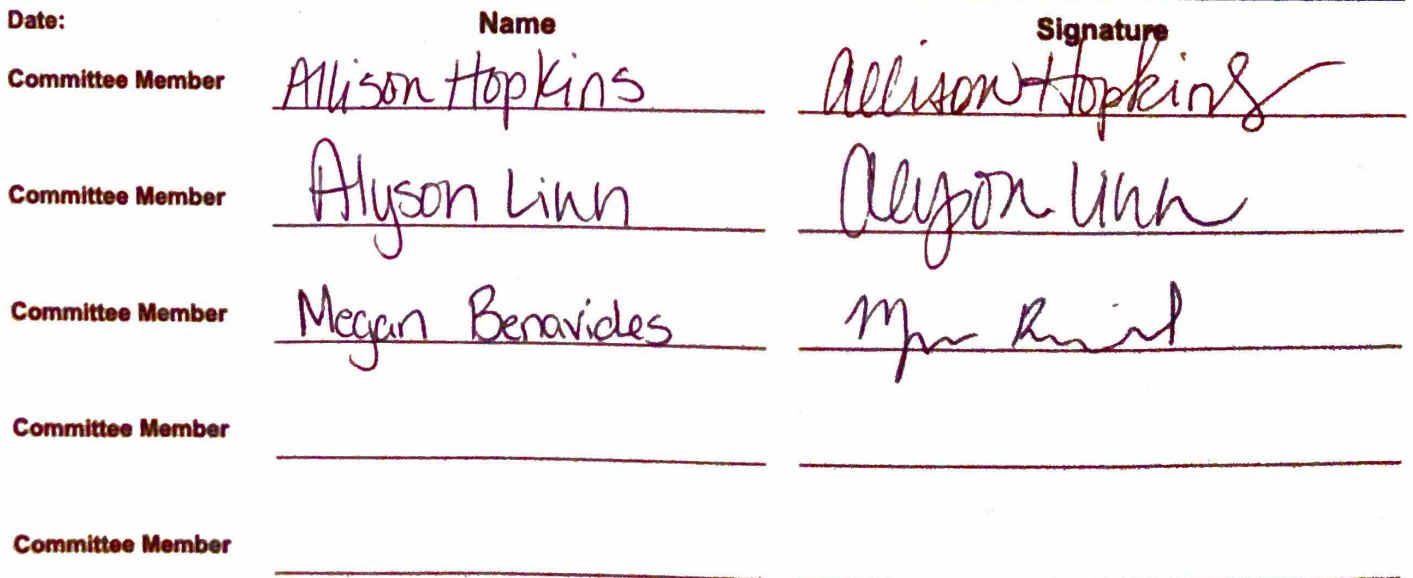 Date: Name Signature
Committee Member Allison Hopkins Allison Hopkins
Committee Member Alyson Linn Alyson Linn
Committee Member Megan Benavides
Committee Member
Committee Member